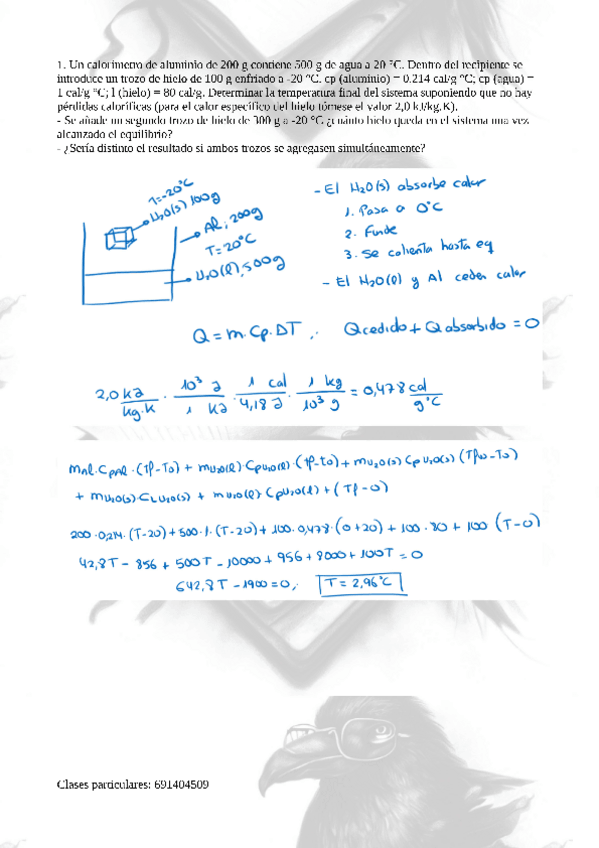 1. Un calorímetro de aluminio de 200 g contiene 500 g de agua a 20 °C. Dentro del recipiente se
introduce un trozo de hielo de 100 g enfriado a -20 °C. cp (aluminio) = 0.214 cal/g °C; cp (agua) =
1 cal/g °C; l (hielo) = 80 cal/g. Determinar la temperatura final del sistema suponiendo que no hay
pérdidas caloríficas (para el calor específico del hielo tómese el valor 2,0 kJ/kg.K).
- Se añade un segundo trozo de hielo de 300 g a -20 °C ¿cuánto hielo queda en el sistema una vez
alcanzado el equilibrio?
- ¿Sería distinto el resultado si ambos trozos se agregasen simultáneamente?
T=-20°C
H₂O(s) 100g
Al, 200g
T=20°C
H₂O(l), 500g
- El H₂O(s) absorbe calor
1. Pasa a 0°C
2. Funde
3. Se calienta hasta eq
- El H₂O(l) y Al ceden calor
Q = m.Cp.ΔT ∴ Qcedido + Qabsorbido = 0
2,0 kJ/kg.K · 10³ J/1 kJ · 1 cal/4,18 J · 1 kg/10³ g = 0,478 cal/g°C
mAl.CpAl.(Tf-To) + mH₂O(l).CpH₂O(l).(Tf-to) + mH₂O(s) CpH₂O(s) (Tfus-To)
+ mH₂O(s).CLH₂O(s) + mH₂O(l) CpH₂O(l) + (Tf-0)
200.0,214.(T-20) + 500.1.(T-20) + 100.0,478.(0+20) + 100.80 + 100 (T-0)
42,8T - 856 + 500T - 10000 + 956 + 8000 + 100T = 0
642,8T - 1900 = 0 ∴ T = 2,96°C
Clases particulares: 691404509